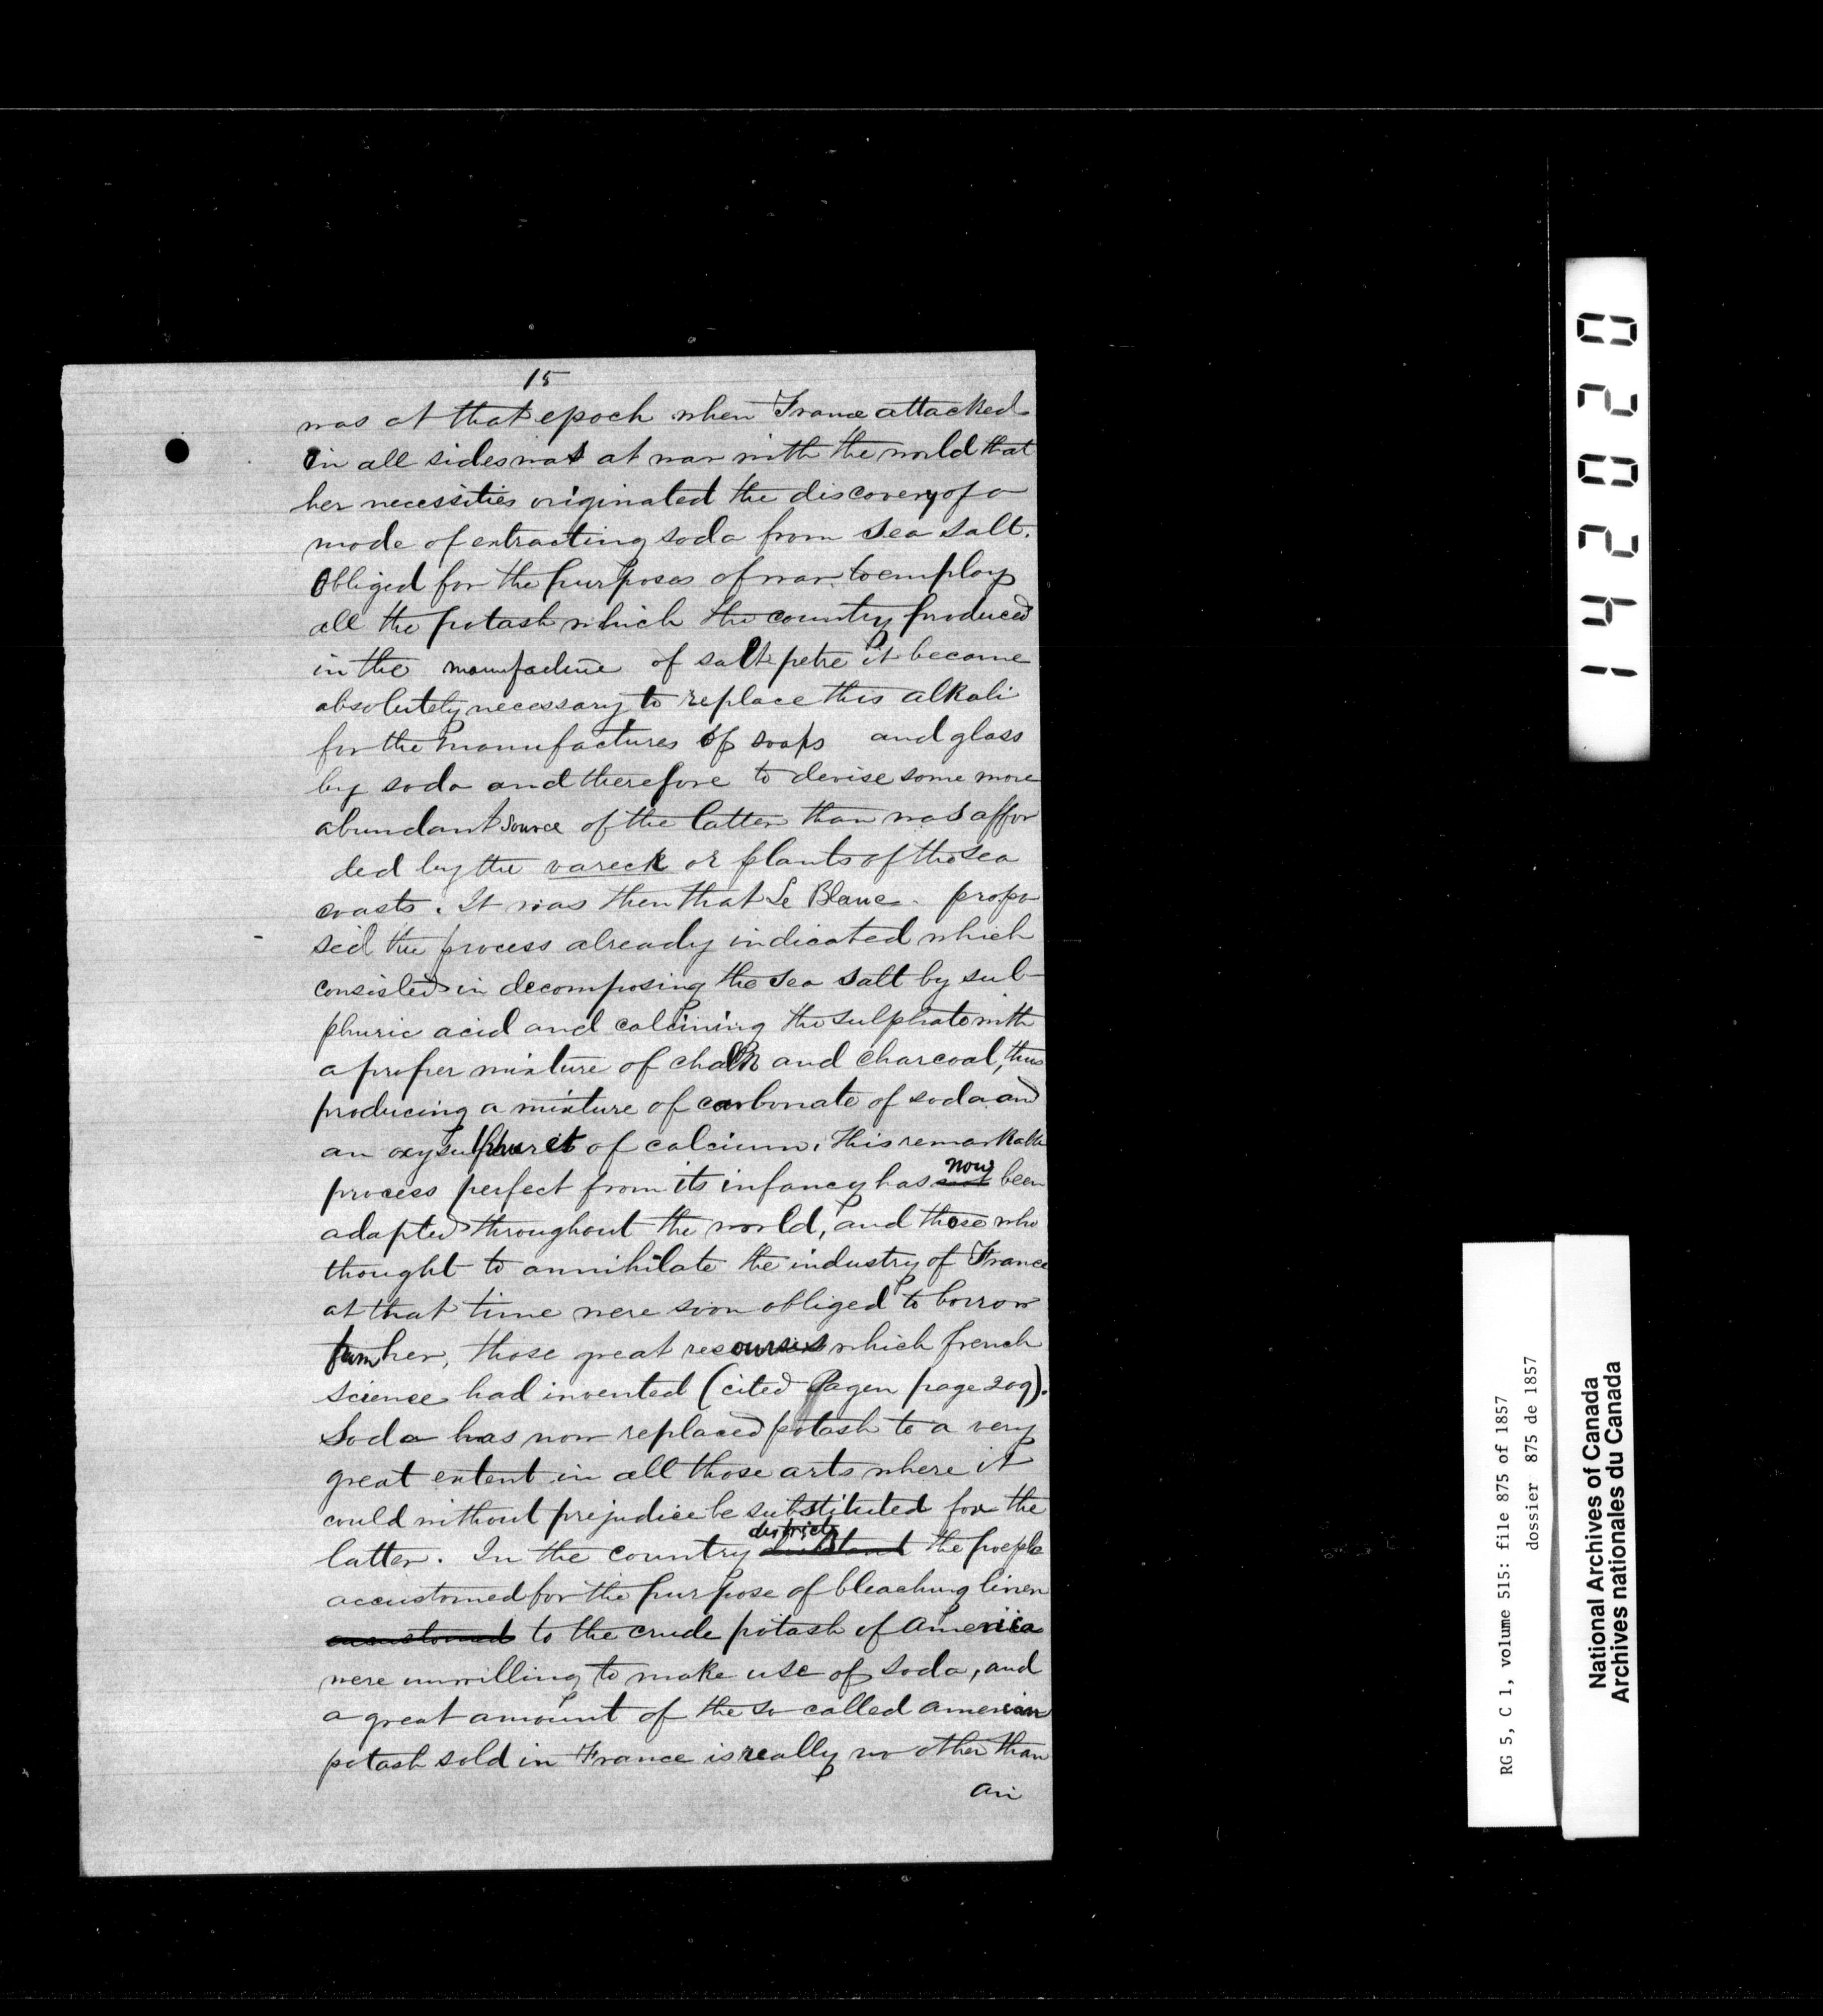 15
was at that epoch when France attacked
on all sides was at war with the world that
her necessities originated the discovery of a
mode of extracting soda from sea salt.
Obliged for the purposes of war to employ
all the potash which the country produced
in the manufacture of saltpetre it became
absolutely necessary to replace this alkali
for the manufactures of soaps and glass
by soda and therefore to devise some more
abundant source of the latter than was affor
ded by the vareck or plants of the sea
coasts. It was then that Le Blanc propo
sed the process already indicated which
consisted in decomposing the sea salt by sul-
phuric acid and calcining the sulphate with
a proper mixture of chalk and charcoal, thus
producing a mixture of carbonate of soda and
an oxysulphuret of calcium. This remarkable
process perfect from its infancy has now been
adapted throughout the world, and those who
thought to annihilate the industry of France
at that time were soon obliged to borrow
from her, those great resources which french
science had invented (cited Payen page 209).
Soda has now replaced potash to a very
great extent in all those arts where it
could without prejudice be substituted for the
latter. In the country districts the poeple
accustomed for the purpose of bleaching linen
accustomed to the crude potash of America
were unwilling to make use of soda, and
a great amount of the so called american
potash sold in France is really no other than
an
142020
RG 5, C 1, volume 515: file 875 of 1857
dossier 875 de 1857
National Archives of Canada
Archives nationales du Canada